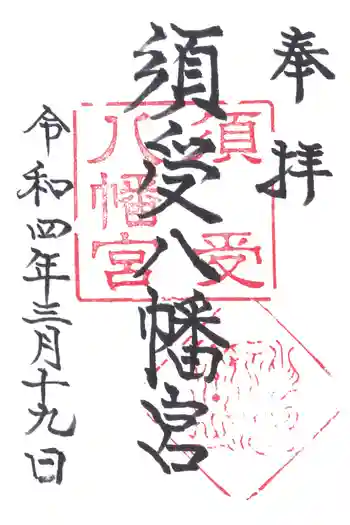 奉拝
須受八幡宮
須受
八幡宮
令和四年三月十九日